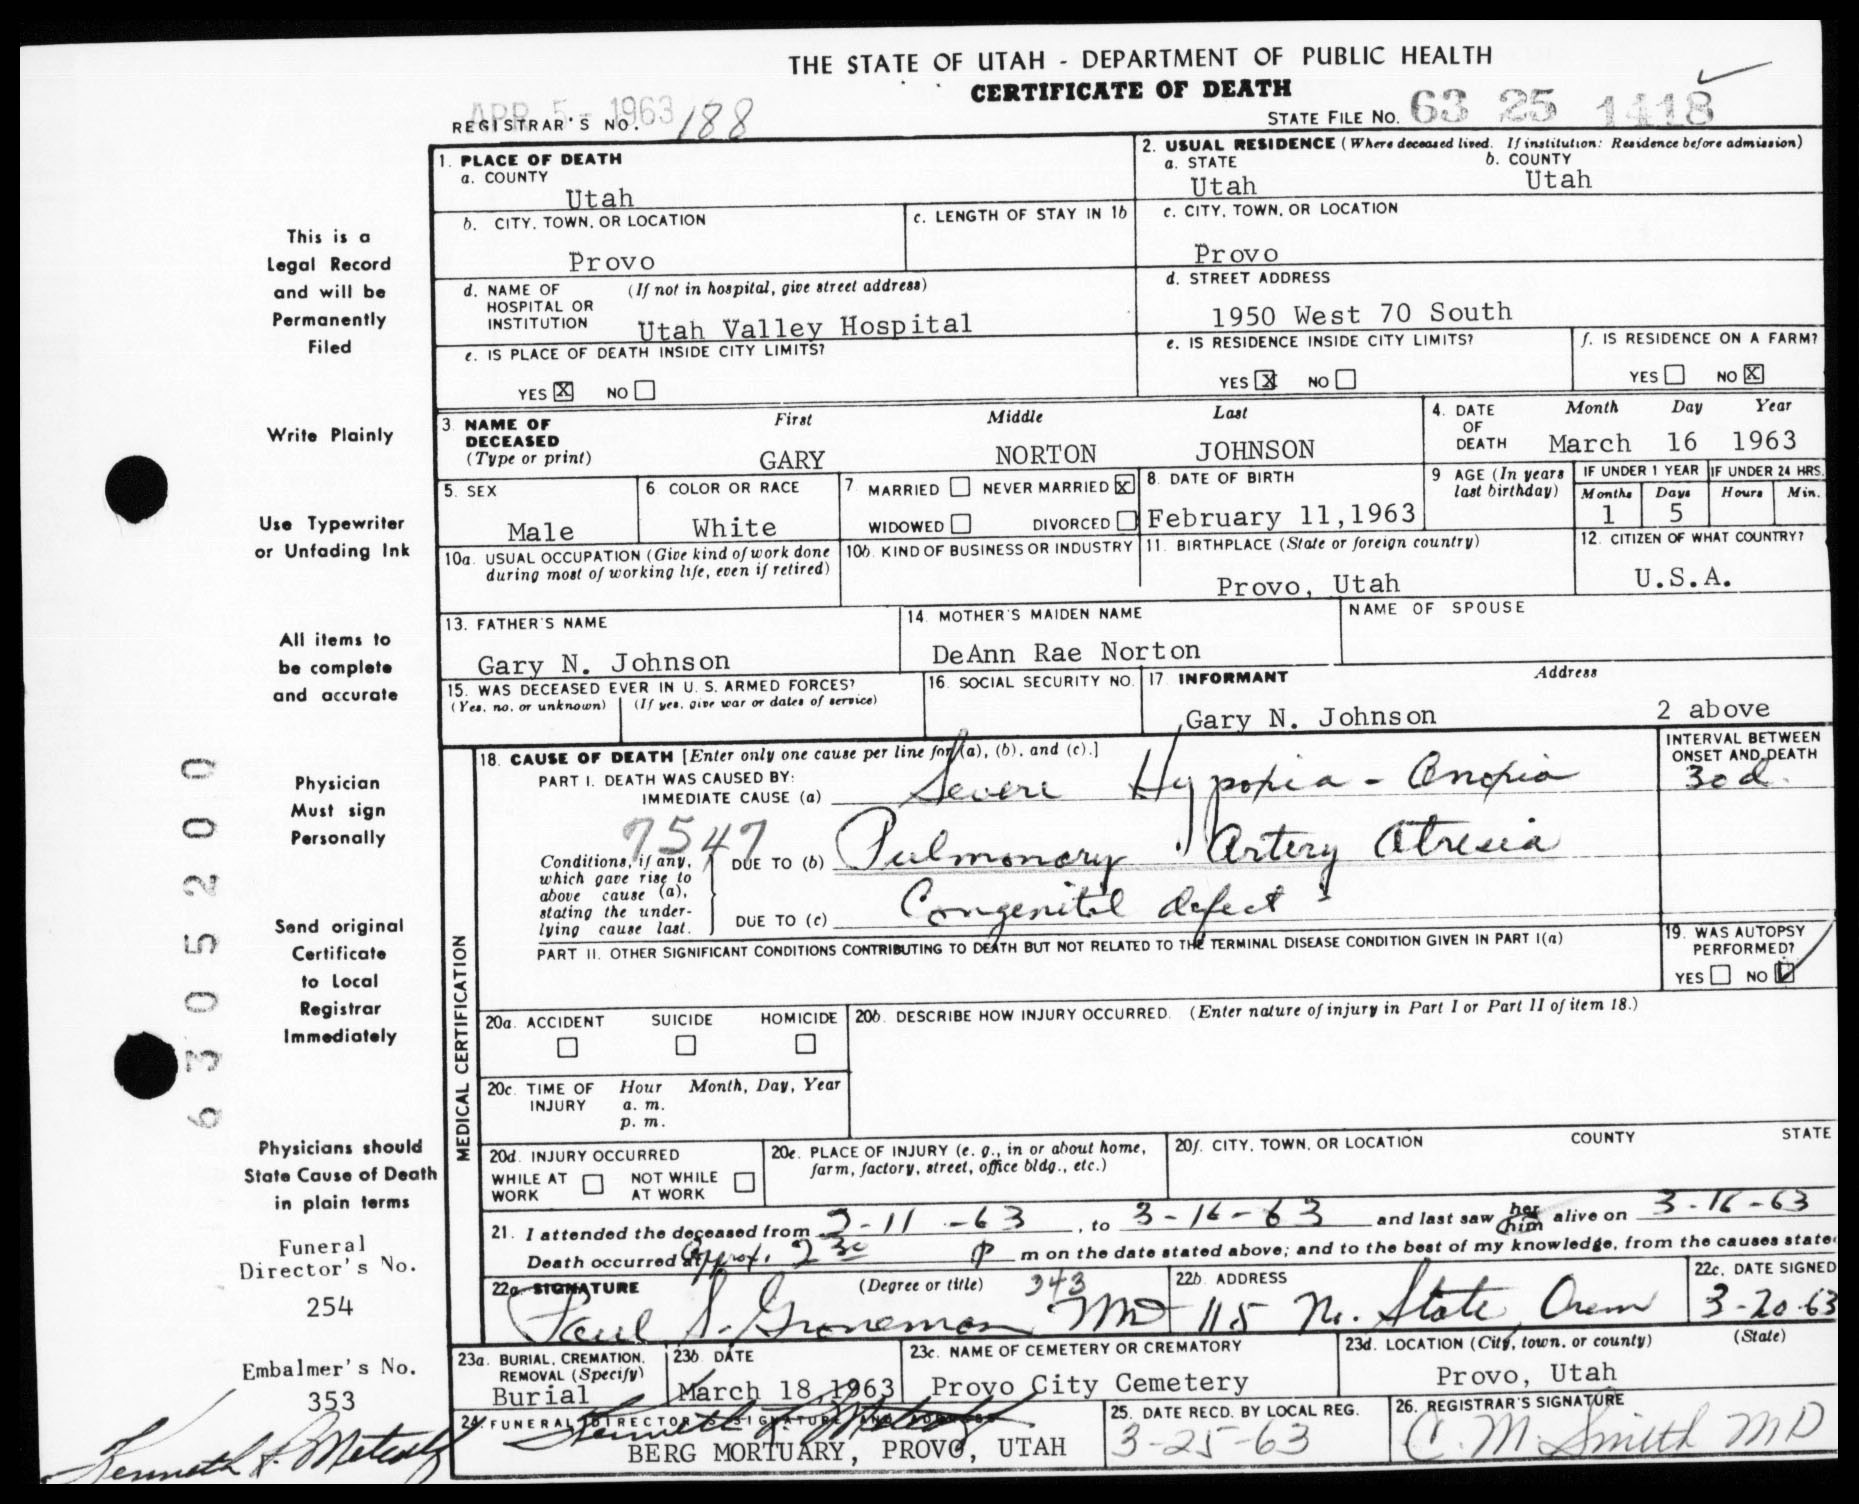 THE STATE OF UTAH - DEPARTMENT OF PUBLIC HEALTH
CERTIFICATE OF DEATH
APR 5 - 1963
REGISTRAR'S NO. 188
STATE FILE NO. 63 25 1418
1. PLACE OF DEATH
a. COUNTY
Utah
2. USUAL RESIDENCE (Where deceased lived. If institution: Residence before admission)
a. STATE b. COUNTY
Utah Utah
b. CITY, TOWN, OR LOCATION
Provo
c. LENGTH OF STAY IN 1b
c. CITY, TOWN, OR LOCATION
Provo
d. NAME OF HOSPITAL OR INSTITUTION (If not in hospital, give street address)
Utah Valley Hospital
d. STREET ADDRESS
1950 West 70 South
e. IS PLACE OF DEATH INSIDE CITY LIMITS?
YES X NO
e. IS RESIDENCE INSIDE CITY LIMITS?
YES X NO
f. IS RESIDENCE ON A FARM?
YES NO X
3. NAME OF DECEASED (Type or print)
First Middle Last
GARY NORTON JOHNSON
4. DATE OF DEATH
Month Day Year
March 16 1963
5. SEX
Male
6. COLOR OR RACE
White
7. MARRIED NEVER MARRIED X
WIDOWED DIVORCED
8. DATE OF BIRTH
February 11,1963
9 AGE (In years last birthday)
IF UNDER 1 YEAR IF UNDER 24 HRS.
Months Days Hours Min.
1 5
10a. USUAL OCCUPATION (Give kind of work done during most of working life, even if retired)
10b. KIND OF BUSINESS OR INDUSTRY
11. BIRTHPLACE (State or foreign country)
Provo, Utah
12. CITIZEN OF WHAT COUNTRY?
U.S.A.
13. FATHER'S NAME
Gary N. Johnson
14. MOTHER'S MAIDEN NAME
DeAnn Rae Norton
NAME OF SPOUSE
15. WAS DECEASED EVER IN U. S. ARMED FORCES?
(Yes, no, or unknown) (If yes, give war or dates of service)
16. SOCIAL SECURITY NO.
17. INFORMANT Address
Gary N. Johnson 2 above
MEDICAL CERTIFICATION
18. CAUSE OF DEATH [Enter only one cause per line for (a), (b), and (c).]
INTERVAL BETWEEN ONSET AND DEATH
PART I. DEATH WAS CAUSED BY:
IMMEDIATE CAUSE (a) Severe Hypoxia - Anoxia 30 d.
7547
Conditions, if any, which gave rise to above cause (a), stating the underlying cause last.
DUE TO (b) Pulmonary Artery Atresia
DUE TO (c) Congenital defect
PART II. OTHER SIGNIFICANT CONDITIONS CONTRIBUTING TO DEATH BUT NOT RELATED TO THE TERMINAL DISEASE CONDITION GIVEN IN PART I(a)
19. WAS AUTOPSY PERFORMED?
YES NO
20a. ACCIDENT SUICIDE HOMICIDE
20b. DESCRIBE HOW INJURY OCCURRED. (Enter nature of injury in Part I or Part II of item 18.)
20c. TIME OF INJURY Hour Month, Day, Year
a. m.
p. m.
20d. INJURY OCCURRED
WHILE AT WORK NOT WHILE AT WORK
20e. PLACE OF INJURY (e. g., in or about home, farm, factory, street, office bldg., etc.)
20f. CITY, TOWN, OR LOCATION COUNTY STATE
21. I attended the deceased from 2-11-63, to 3-16-63 and last saw her him alive on 3-16-63
Death occurred at Approx. 2 30 p m on the date stated above; and to the best of my knowledge, from the causes state
22a. SIGNATURE (Degree or title) 343
Paul S. Groneman MD
22b. ADDRESS
115 N. State, Orem
22c. DATE SIGNED
3-20-63
23a. BURIAL, CREMATION, REMOVAL (Specify)
Burial
23b. DATE
March 18,1963
23c. NAME OF CEMETERY OR CREMATORY
Provo City Cemetery
23d. LOCATION (City, town, or county) (State)
Provo, Utah
24. FUNERAL DIRECTOR'S SIGNATURE AND ADDRESS
BERG MORTUARY, PROVO, UTAH
25. DATE RECD. BY LOCAL REG.
3-25-63
26. REGISTRAR'S SIGNATURE
C. M. Smith MD
This is a
Legal Record
and will be
Permanently
Filed
Write Plainly
Use Typewriter
or Unfading Ink
All items to
be complete
and accurate
Physician
Must sign
Personally
Send original
Certificate
to Local
Registrar
Immediately
Physicians should
State Cause of Death
in plain terms
Funeral
Director's No.
254
Embalmer's No.
353
Kenneth
6305200